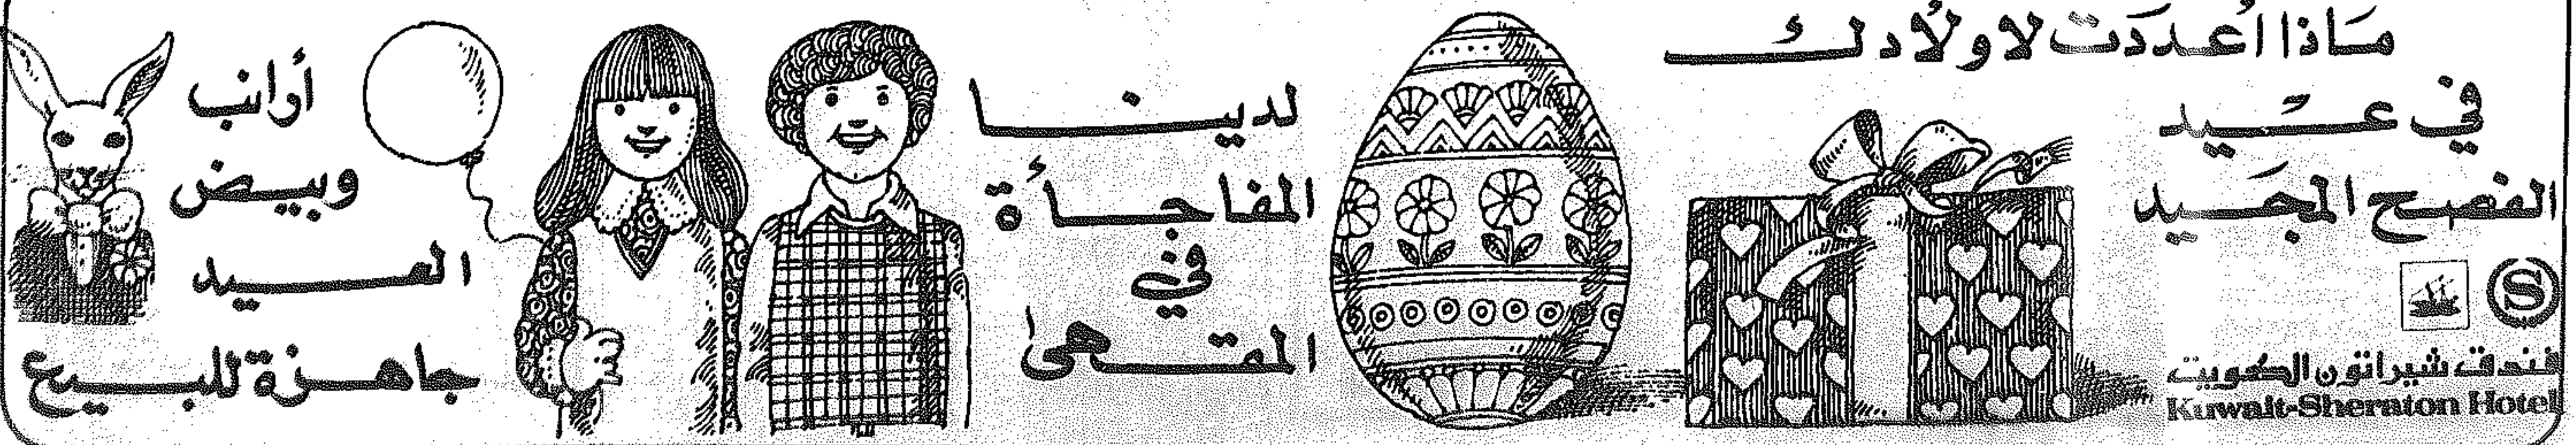 مَاذا أعددَت لاولادك
في عيد
الفصح المجيد
فندق شيراتون الكويت
Kuwait-Sheraton Hotel
S
لدينا
المفاجأة
في
المقهى
أرانب
وبيض
العيد
جاهزة للبيع